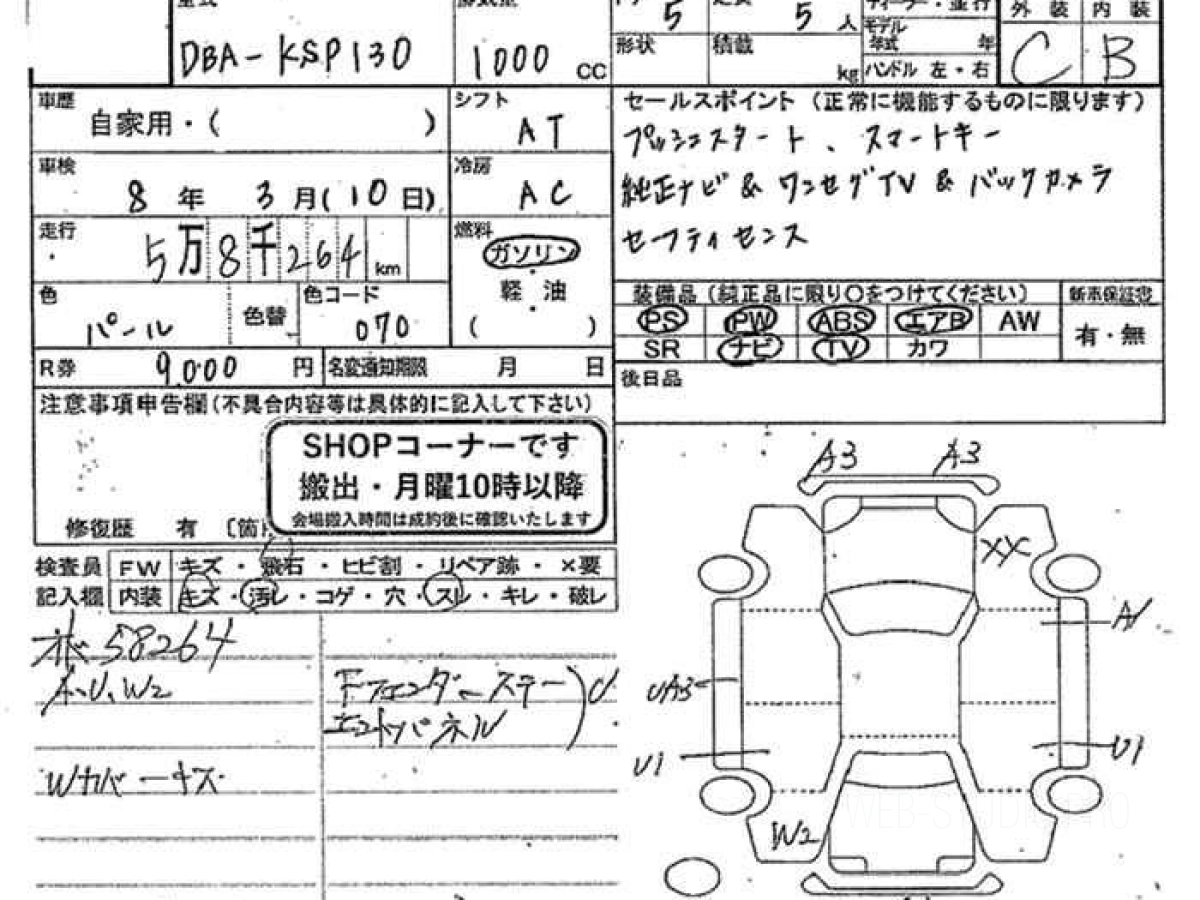 DBA-KSP130
1000 cc
5
5 人
モデル
年式 年
形状
積載
kg
ハンドル 左・右
外装 内装
C B
車歴
自家用・( )
シフト
AT
車検
8年 3月(10日)
冷房
AC
走行
5万8千264 km
燃料
ガソリン
軽油
( )
色
パール
色替
色コード
070
R券
9,000 円
名変通知期限 月 日
セールスポイント (正常に機能するものに限ります)
プッシュスタート、スマートキー
純正ナビ & ワンセグTV & バックカメラ
セーフティセンス
装備品 (純正品に限り○をつけてください)
新車保証書
PS PW ABS エアB AW
有・無
SR ナビ TV カワ
後日品
注意事項申告欄(不具合内容等は具体的に記入して下さい)
SHOPコーナーです
搬出・月曜10時以降
会場搬入時間は成約後に確認いたします
修復歴 有
検査員 FW キズ・飛石・ヒビ割・リペア跡・×要
記入欄 内装 キズ・汚レ・コゲ・穴・スレ・キレ・破レ
58264
A.U.W2
Wカバーキズ
Fフェンダーステー
エンドパネル
U
A3 A3
XX
A1
UA3
U1
U1
W2
WEB-STUDIO.PRO